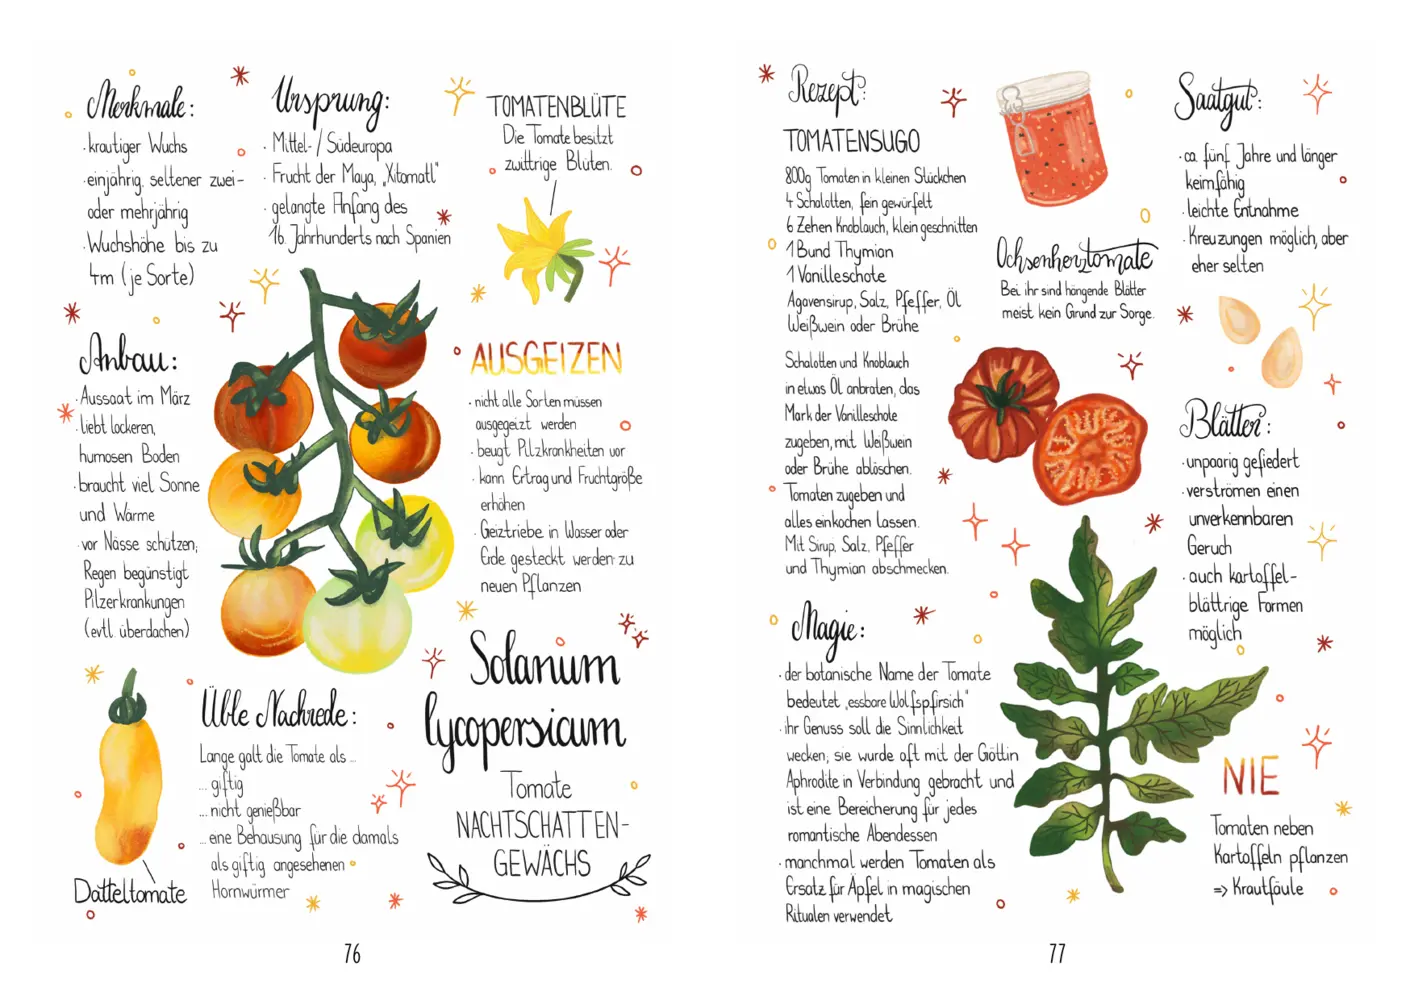 Merkmale:
· krautiger Wuchs
· einjährig, seltener zwei-
oder mehrjährig
· Wuchshöhe bis zu
4m (je Sorte)
Ursprung:
· Mittel-/Südeuropa
· Frucht der Maya, „Xitomatl“
· gelangte Anfang des
16. Jahrhunderts nach Spanien
TOMATENBLÜTE
Die Tomate besitzt
zwittrige Blüten.
Anbau:
· Aussaat im März
· liebt lockeren,
humosen Boden
· braucht viel Sonne
und Wärme
· vor Nässe schützen,
Regen begünstigt
Pilzerkrankungen
(evtl. überdachen)
AUSGEIZEN
· nicht alle Sorten müssen
ausgegeizt werden
· beugt Pilzkrankheiten vor
· kann Ertrag und Fruchtgröße
erhöhen
· Geiztriebe in Wasser oder
Erde gesteckt werden zu
neuen Pflanzen
Datteltomate
Üble Nachrede:
Lange galt die Tomate als ...
... giftig
... nicht genießbar
... eine Behausung für die damals
als giftig angesehenen
Hornwürmer
Solanum
lycopersicum
Tomate
NACHTSCHATTEN-
GEWÄCHS
76
Rezept:
TOMATENSUGO
800g Tomaten in kleinen Stückchen
4 Schalotten, fein gewürfelt
6 Zehen Knoblauch, klein geschnitten
1 Bund Thymian
1 Vanilleschote
Agavensirup, Salz, Pfeffer, Öl
Weißwein oder Brühe
Schalotten und Knoblauch
in etwas Öl anbraten, das
Mark der Vanilleschote
zugeben, mit Weißwein
oder Brühe ablöschen.
Tomaten zugeben und
alles einkochen lassen.
Mit Sirup, Salz, Pfeffer
und Thymian abschmecken.
Ochsenherztomate
Bei ihr sind hängende Blätter
meist kein Grund zur Sorge.
Saatgut:
· ca. fünf Jahre und länger
keimfähig
· leichte Entnahme
· Kreuzungen möglich, aber
eher selten
Blätter:
· unpaarig gefiedert
· verströmen einen
unverkennbaren
Geruch
· auch kartoffel-
blättrige Formen
möglich
Magie:
· der botanische Name der Tomate
bedeutet „essbare Wolfspfirsich“
· ihr Genuss soll die Sinnlichkeit
wecken; sie wurde oft mit der Göttin
Aphrodite in Verbindung gebracht und
ist eine Bereicherung für jedes
romantische Abendessen
· manchmal werden Tomaten als
Ersatz für Äpfel in magischen
Ritualen verwendet
NIE
Tomaten neben
Kartoffeln pflanzen
=> Krautfäule
77